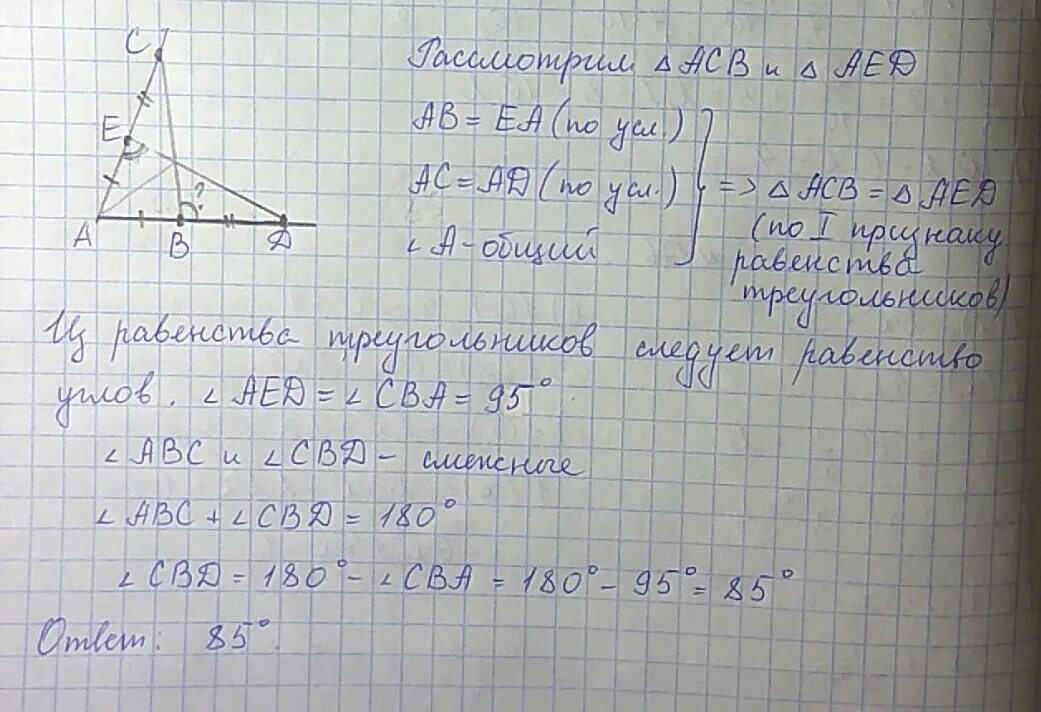 C
E
?
A
B
D
Рассмотрим △ ACB и △ AED
AB = EA (по усл.)
AC = AD (по усл.) => △ ACB = △ AED
∠A - общий (по I признаку
равенства
треугольников)
Из равенства треугольников следует равенство
углов. ∠AED = ∠CBA = 95°
∠ABC и ∠CBD - смежные
∠ABC + ∠CBD = 180°
∠CBD = 180° - ∠CBA = 180° - 95° = 85°
Ответ: 85°